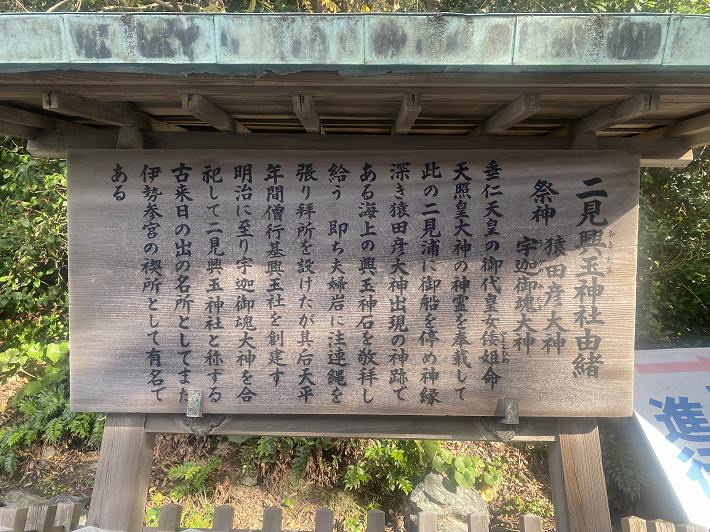 二見興玉神社由緒
おきたま
祭神 猿田彦大神
宇迦御魂大神
垂仁天皇の御代皇女倭姫命
天照皇大神の神霊を奉載して
此の二見浦に御船を停め神縁
深き猿田彦大神出現の神跡で
ある海上の興玉神石を敬拝し
給う 即ち夫婦岩に注連縄を
張り拝所を設けたが其后天平
年間僧行基興玉社を創建す
明治に至り宇迦御魂大神を合
祀して二見興玉神社と称する
古来日の出の名所としてまた
伊勢参宮の禊所として有名で
ある
進行